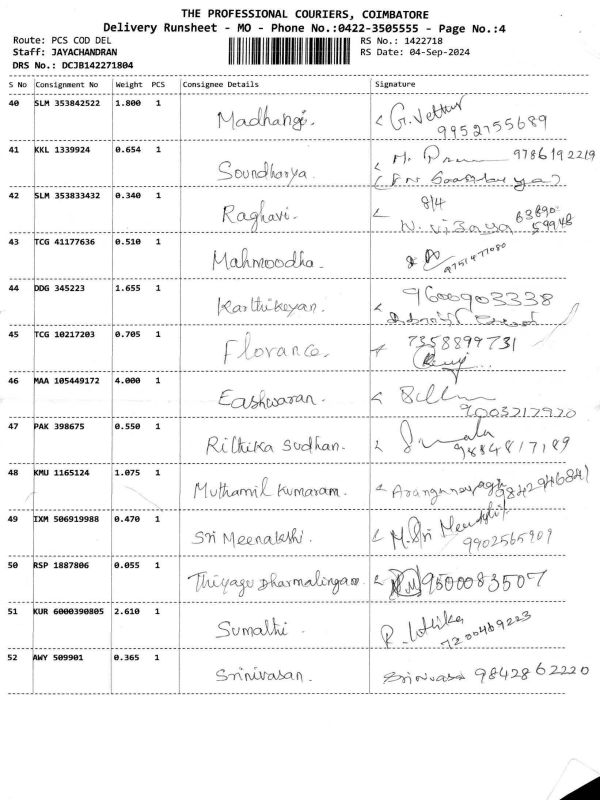 THE PROFESSIONAL COURIERS, COIMBATORE
Delivery Runsheet - MO - Phone No.:0422-3505555 - Page No.:4
Route: PCS COD DEL RS No.: 1422718
Staff: JAYACHANDRAN RS Date: 04-Sep-2024
DRS No.: DCJB142271804
S No Consignment No Weight PCS Consignee Details Signature
40 SLM 353842522 1.800 1 Madhangi. G. Vettur
9952755689
41 KKL 1339924 0.654 1 Soundharya. M. 9786192219
42 SLM 353833432 0.340 1 Raghavi. 8/4
N. Vijaya 63890 59948
43 TCG 41177636 0.510 1 Mahmoodha. 9751477080
44 DDG 345223 1.655 1 Karthikeyan. 9600903338
45 TCG 10217203 0.705 1 Florance. 7358899731
46 MAA 105449172 4.000 1 Eashwaran. 9003217920
47 PAK 398675 0.550 1 Rithika Sudhan. 9884817189
48 KMU 1165124 1.075 1 Muthamil Kumaram. Aranganayagi 9842946841
49 IXM 506919988 0.470 1 Sri Meenakshi. M. Sri Meenakshi
9902565909
50 RSP 1887806 0.055 1 Thiyagu Dharmalingam 9500083507
51 KUR 6000390805 2.610 1 Sumathi. R. Lathika
7200469223
52 AWY 509901 0.365 1 Srinivasan. Srinivasa 9842862220